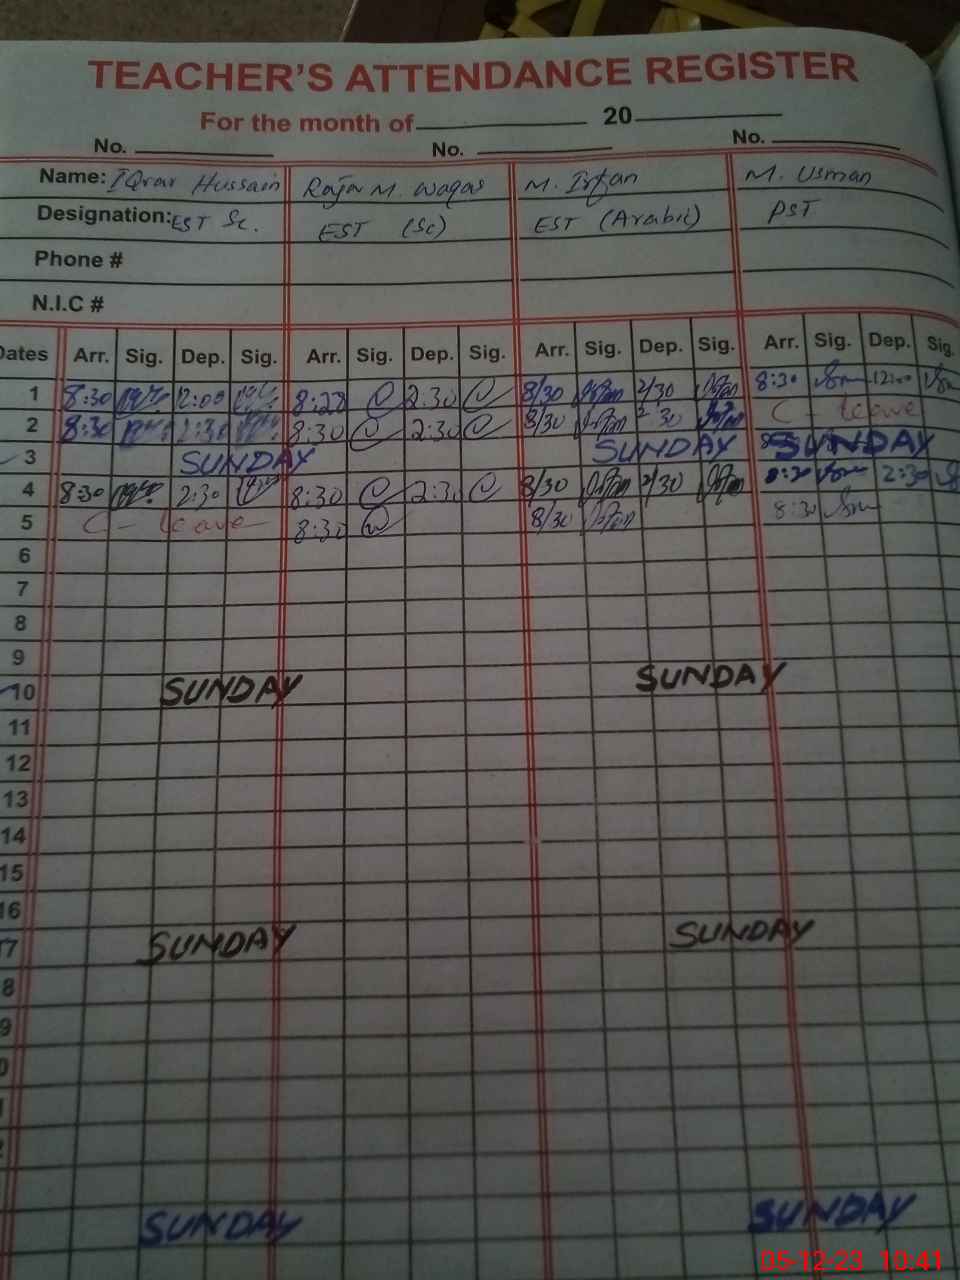 TEACHER'S ATTENDANCE REGISTER
For the month of 20
No. No. No.
Name: IQrar Hussain Raja M. Waqas M. Irfan M. Usman
Designation: EST Sc. EST (Sc) EST (Arabic) PST
Phone #
N.I.C #
Dates Arr. Sig. Dep. Sig. Arr. Sig. Dep. Sig. Arr. Sig. Dep. Sig. Arr. Sig. Dep. Sig.
1 8:30 12:00 8:28 2:30 8/30 2/30 8:30 12:00
2 8:30 2:30 8:30 2:30 8/30 2 30 C - leave
3 SUNDAY SUNDAY SUNDAY
4 8:30 2:30 8:30 2:30 8/30 2/30 8:30 2:30
5 C - leave 8:30 8/30 8:30
6
7
8
9
10 SUNDAY SUNDAY
11
12
13
14
15
16
17 SUNDAY SUNDAY
8
9
0
SUNDAY SUNDAY
05-12-23 10:41